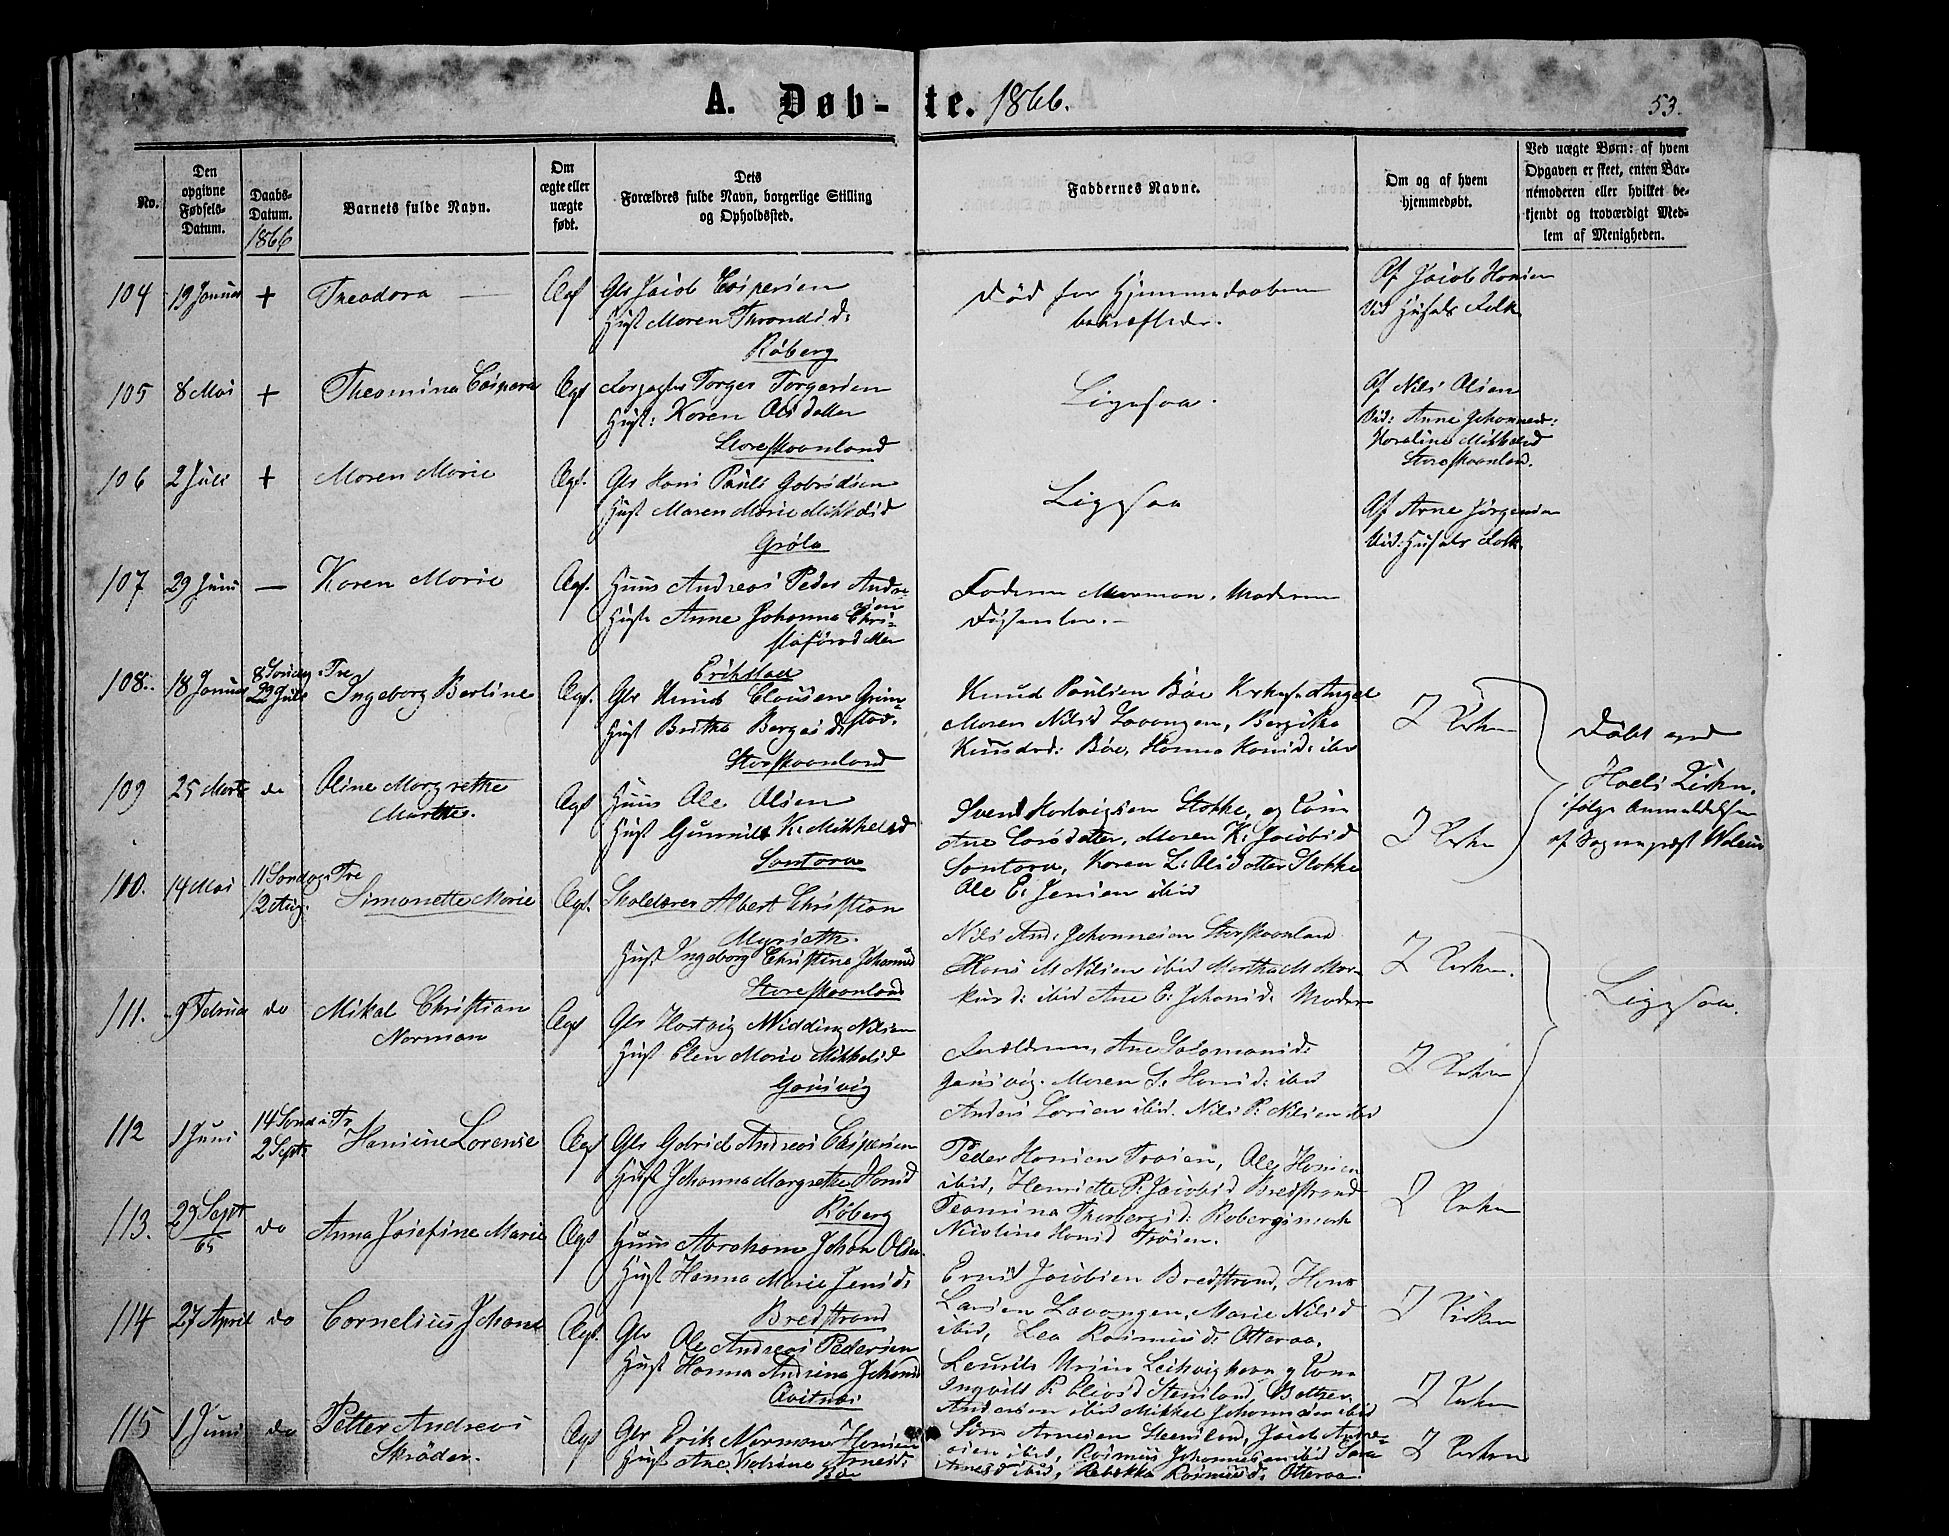 A. Døb-te. 1866.
53.
No.
Den
opgivne
Fødsels-
Datum.
Daabs-
Datum.
1866
Barnets fulde Navn.
Om
ægte eller
uægte
født.
Dets
Forældres fulde Navn, borgerlige Stilling
og Opholdssted.
Faddernes Navne.
Om og af hvem
hjemmedøbt.
Ved uægte Børn: af hvem
Opgaven er skeet, enten Bar-
nemoderen eller hvilket be-
kjendt og troværdigt Med-
lem af Menigheden.
104 19 Januar + Theodora
Gbr Jacob Caspersen
Hust Maren Thronds d:
Røberg
Død før Hjemmedaaben
bekræftedes.
Af Jacob Hansen
Vid Husets Folk
105 8 Mai + Theomina Caspara Ægt
Torger Torgersen
Hust: Karen Olsdatter
Storeskaanland
Ligesaa.
Af Nils Olsen
Vid: Anne Johannesd:
Karoline Mikkelsd
Storeskaanland.
106 2 Juli + Maren Marie Ægt.
Gbr Hans Pauls Gabrielsen
Hust Maren Marie Mikkelsd
Grøla
Ligesaa
Af Arne Jørgensen
Vid: Husets Folk.
107 29 Juni — Karen Marie Ægt.
Huus Andreas Peder Andre-
sen
Hust Anne Johanna Chri-
stofersdatter
Erikstad
Faderen Mormon, Moderen
Dissenter.
108. 18 Januar 8 Søndag e Tre
29 Juli Ingeborg Berline Ægt.
Gbr Knud Clausen Grøn-
Hust Berthe Berges d:
Storskaanland
Knud Paulsen Bøe
Maren Nilsd Lavangen, Bergitha
Knudsd: Bøe, Hanna Hansd: ibid
I Kirken
Døbt ved
Hols Kirke,
ifølge Anmeldelse
af Sognepræst
109 25 Marts do Oline Margrethe
Marthe.
Ægt
Huus Ole Olsen
Hust Gunnild K: Mikkelsd
Santorv
Svend Hartvigsen Stokke, og Kone
Ane Larsdatter, Maren K: Jacobsd
Santorv, Karen L: Olsdatter Stokke
Ole E: Jensen ibid
I Kirken
110. 14 Mai 11 Søndag e Tre
12 Aug. Simonette Marie Ægt.
Skolelærer Albert Christian
Myrseth.
Hust Ingeborg Christine Johannesd
Storeskaanland
Nils And: Johannesen Storskaanland
Hans M Nilsen ibid Martha M Mar-
kusd: ibid Ane E: Johansd: Moder
I Kirken.
Ligesaa.
111. 9 Februar do Mikal Christian
Norman
Ægt
Gbr Hartvig Widding Nilsen
Hust Elen Marie Mikkelsd
Gausvig
Forældrene, Ane Salamonsd:
Gausvig. Maren S: Hansd: ibid
Anders Larsen ibid. Nils P: Nilsen ibid
I Kirken
112 1 Juni 14 Sønd e Tr
2 Septr Hansine Lorense Ægt
Gbr Gabriel Andreas Caspersen
Hust Johanna Margrethe Hansd
Røberg
Peder Hansen Trøien, Ole Hansen
ibid, Henriette P: Jacobsd Bredstrand
Teomina Thorbergsd: Robergsmark
Nicoline Hansd Trøien.
I Kirken
113. 29 Sept
65 do Anna Josefine Marie Ægt
Huus Abraham Johan Olsen
Hust Hanna Marie Jensd:
Bredstrand
Jacobsen Bredstrand, Hans
Larsen Lavangen, Marie Nilsd
ibid, Lea Rasmusd: Otteraa.
I Kirken
114 27 April do Cornelius Johan Ægt.
Gbr Ole Andreas Pedersen
Hust Hanna Andrina Johansd
Qvitnes
Laurits Ursin Leikvighavn og Kone
Ingvild P: Eliasd Steinland, Balthser
Andersen ibid Mikkel Johannesen ibid
I Kirken
115 1 Juni do Petter Andreas
Skrøder.
Ægt
Gbr Erik Norman Hansen
Hust Ane Arnesd:
Bøe
Søren Arnesen Steinland, Jacob Andre-
asen ibid, Rasmus Johannesen ibid Sara
Arnesd ibid, Rebekka Rasmusd: Otteraa.
I Kirken